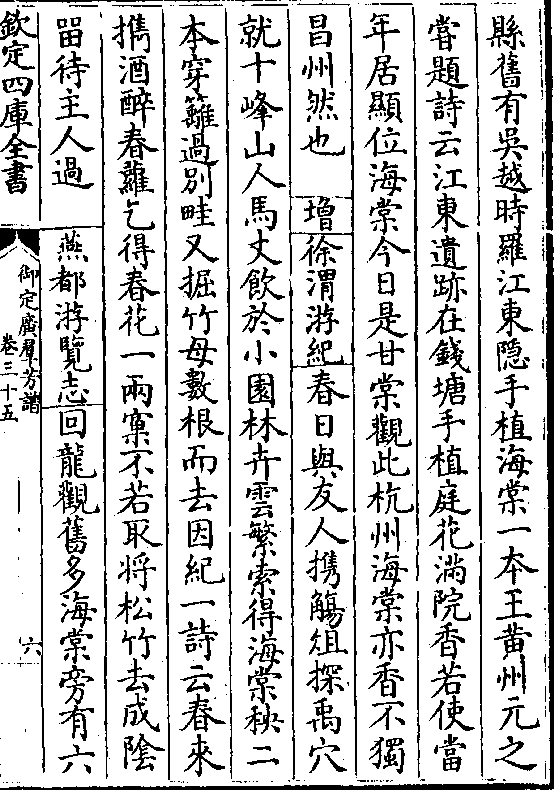 縣舊有吳越時羅江東隠手植海棠一本王黄州元之
甞題詩云江東遺跡在錢塘手植庭花滿院香若使當
年居顯位海棠今日是甘棠觀此杭州海棠亦香不獨
昌州然也 增徐渭游紀春日與友人攜觴俎探禹穴
就十峰山人馬丈飲於小園林卉雲繁索得海棠秧二
本穿籬過別畦又掘竹母數根而去因紀一詩云春來
攜酒醉春蘿乞得春花一兩窠不若取将松竹去成陰
畱待主人過 燕都游覽志回龍觀舊多海棠旁有六
欽定四庫全書
御定廣羣芳譜
卷三十五
六